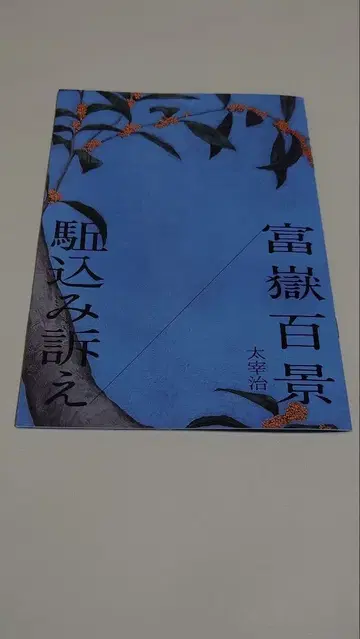 富嶽百景
太宰治
駈込み訴え